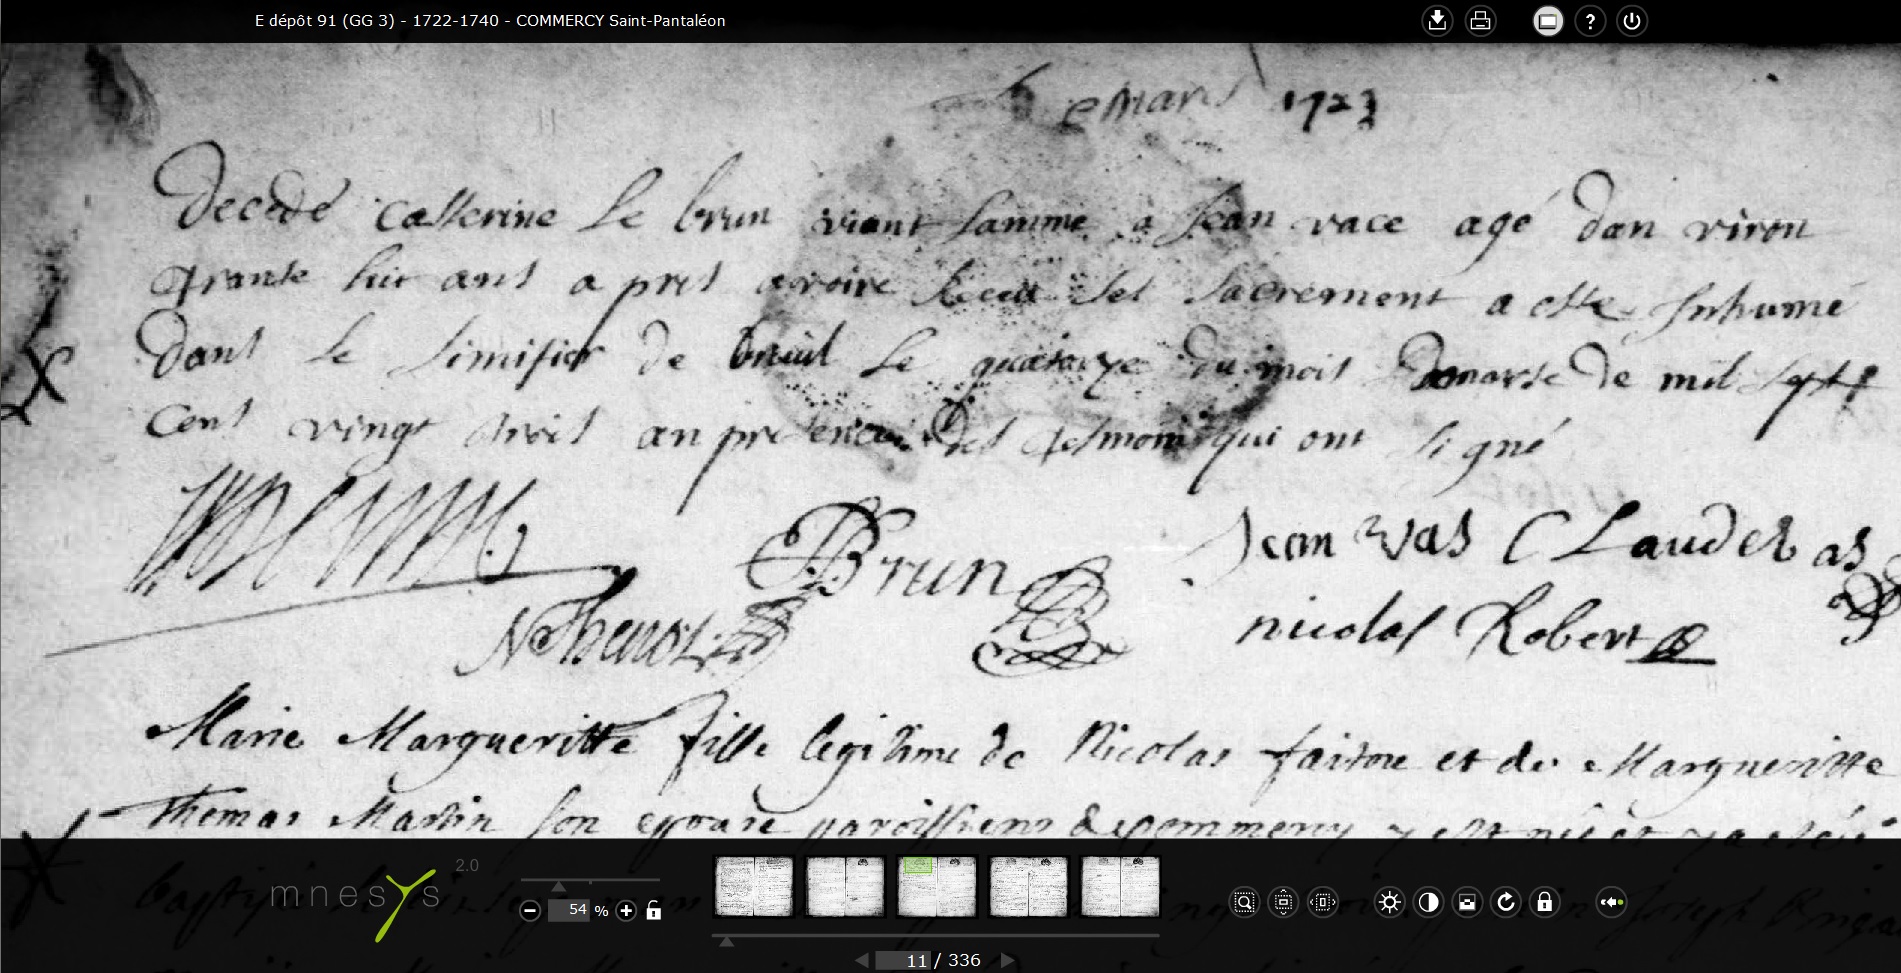 E dépôt 91 (GG 3) - 1722-1740 - COMMERCY Saint-Pantaléon
emars 1723
Decede Catterine Le brun viant famme a Jean vace agé dan viron
trante huit ans a pres avoire Receu Ses Sacrement a este Inhumé
dans le Simitier de breuil Le quatorze du mois de marse de mil Sept
Cent vingt trois an presence des tesmoins qui ont Signé
Brun Jean vas CLaudel as
nicolas Robert
Marie Margueritte fille legitime de Nicolas et de Margueritte
Thomas Martin son epouse paroissiens de commercy y est né et y a été
mnesys 2.0
54 %
11 / 336